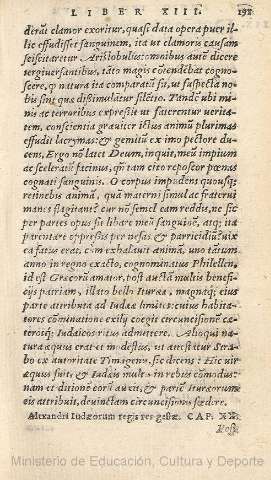 LIBER XIII. 191
derāt clamor exoritur, quasi data opera puer il-
lic effudisset sanguinem, ita ut clamoris causam
sciscitaretur. Aristobulus: omnibus autē dicere
tergiuersantibus, tāto magis cōtendebat cogno-
scere, ꝙ natura ita comparatū sit, ut suspecta no-
bis sint quæ dissimulātur silētio. Tandē ubi mi-
nis ac terroribus expressit ut faterentur verita-
tem, conscientia grauiter ictus animū plurimas
effudit lacrymas: & gemitū ex imo pectore du-
cens, Ergo nō latet Deum, inquit, meū impium
ac sceleratū facinus, qn̄ tam cito reposcor pœnas
cognati sanguinis. O corpus impudens quousq;
retinebis animā, quā materni simulac fraterni
manes flagitant? cur nō semel eam reddis, ne sic
per partes opus sit libare meū sanguinē, atq; ita
parentare oppressis per nefas & parricidiū? vix
ea fatus erat, cūm exhalauit animā, vno tātùm
anno in regno exacto, cognominatus Philellen,
id est Græcorū amator, post auctā multis benefi-
cijs patriam, illato bello Ituræa, magnaq; eius
parte attributa ad Iudææ limites: cuius habita-
tores cōminatione exilij coëgit circuncisionē cæ-
terosq; Iudaicos ritus admittere. Alioqui na-
tura æquus erat et modestus, ut attestatur Stra-
bo ex autoritate Timagenis, sic dicens: Hic vir
æquus fuit, & Iudæis multū in rebus cōmodus:
nam et ditionē eorū auxit, & partē Ituræorum
eis attribuit, deuinctam circuncisionis fœdere.
Alexandri Iudæorum regis res gestæ. CAP. XX.
Post
Ministerio de Educación, Cultura y Deporte